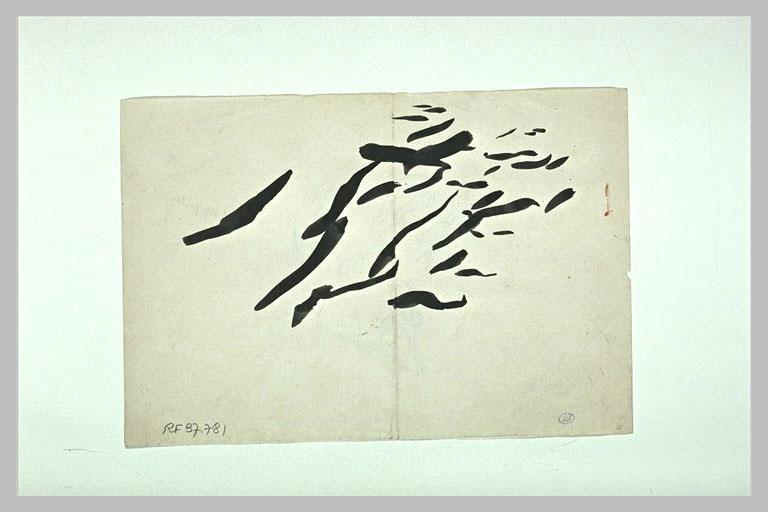 RF 37.781